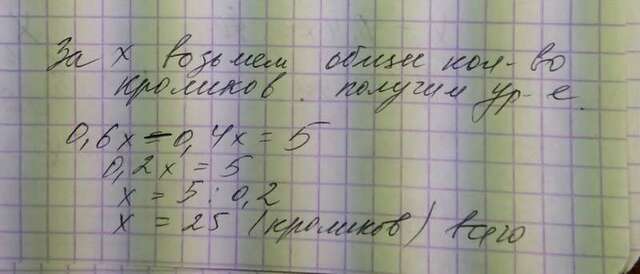 За х возьмем общее кол-во
кроликов. получим ур-е.
0,6х - 0,4х = 5
0,2х = 5
х = 5 : 0,2
х = 25 (кроликов) всего